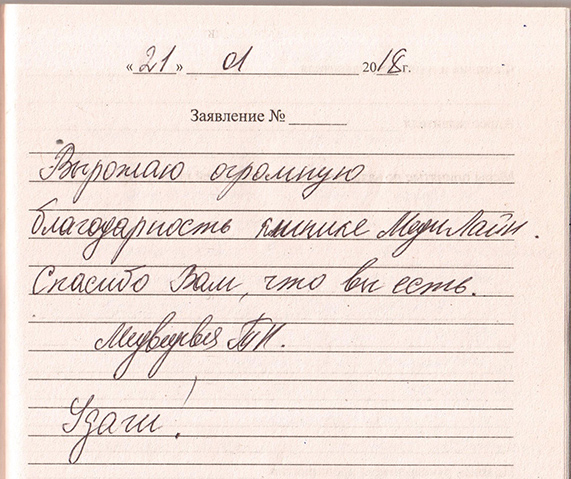 «21» 01 2018г.
Заявление №
Выражаю огромную
благодарность клинике МедиЛайн.
Спасибо Вам, что вы есть.
Медведева Т.Н.
Удачи!